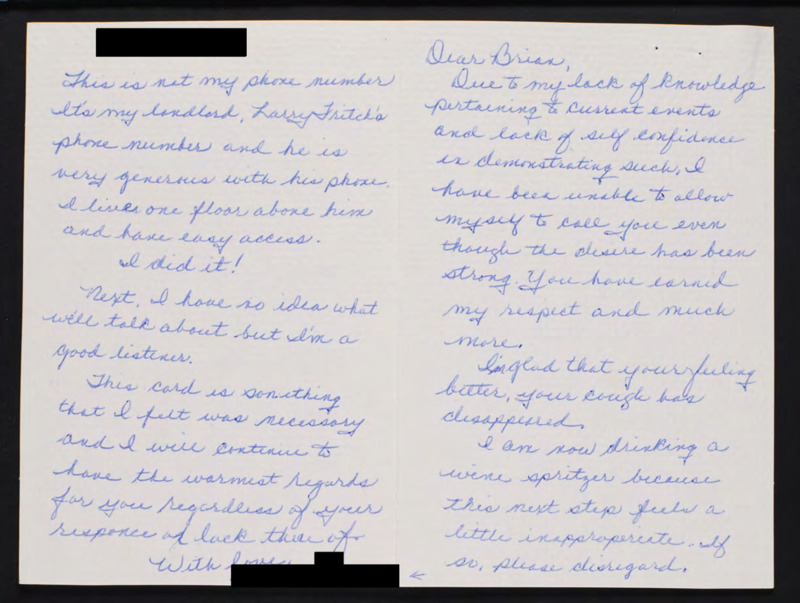 Dear Brian,
Due to my lack of knowledge
pertaining to current events
and lack of self confidence
in demonstrating such, I
have been unable to allow
myself to call you even
though the desire has been
strong. You have earned
my respect and much
more.
I'm glad that your feeling
better, your cough has
disappeared.
I am now drinking a
wine spritzer because
this next step feels a
little inapproperiate. If
so, please disregard.
←
This is not my phone number
It's my landlord, Larry Fritch's
phone number and he is
very generous with his phone.
I lives one floor above him
and have easy access.
I did it!
Next, I have no idea what
we'll talk about but I'm a
good listener.
This card is something
that I felt was necessary
and I will continue to
have the warmest regards
for you regardless of your
responce or lack there of.
With love